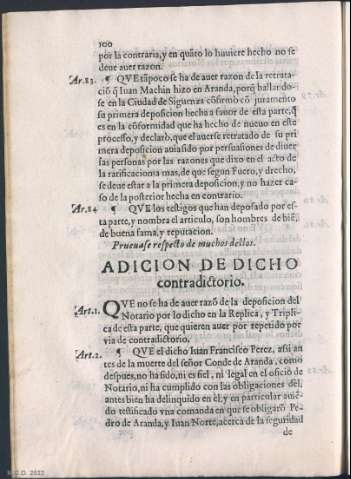 100
por la contraria, y en quãto lo huuiere hecho no se
deue auer razon.
Ar.83. ¶ QVE tãpoco se ha de auer razon de la retrata-
ció q̃ Iuan Machin hizo en Aranda, porq̃ hallando-
se en la Ciudad de Siguenza cõfirmò cõ juramento
su primera deposicion hecha a fauor de esta parte, q̃
es en la cõformidad que ha hecho de nueuo en este
processo, y declarò, que el auerse retratado de su pri
mera deposicion auia sido por persuasiones de diuer
sas personas por las razones que dixo en el acto de
la ratificacion a mas, de que segun Fuero, y drecho,
se deue estar a la primera deposicion, y no hazer ca-
so de la posterior hecha en contrario.
Ar.84 ¶ QVE los testigos que han deposado por es-
ta parte, y nombra el articulo, son hombres de biẽ,
de buena fama, y reputacion.
Prueuase respecto de muchos dellos.
ADICION DE DICHO
contradictorio.
Art.1. QVE no se ha de auer razõ de la deposicion del
Notario por lo dicho en la Replica, y Tripli-
ca de esta parte, que quieren auer por repetido por
via de contradictorio.
Art.2. ¶ QVE el dicho Iuan Francisco Perez, assi an
tes de la muerte del señor Conde de Aranda, como
despues, no ha sido, ni es fiel, ni legal en el oficio de
Notario, ni ha cumplido con las obligaciones dèl,
antes bien ha delinquido en el, y en particular auiẽ-
do testificado vna comanda en que se obligarõ Pe-
dro de Aranda, y Iuan Norte, acerca de la seguridad
de